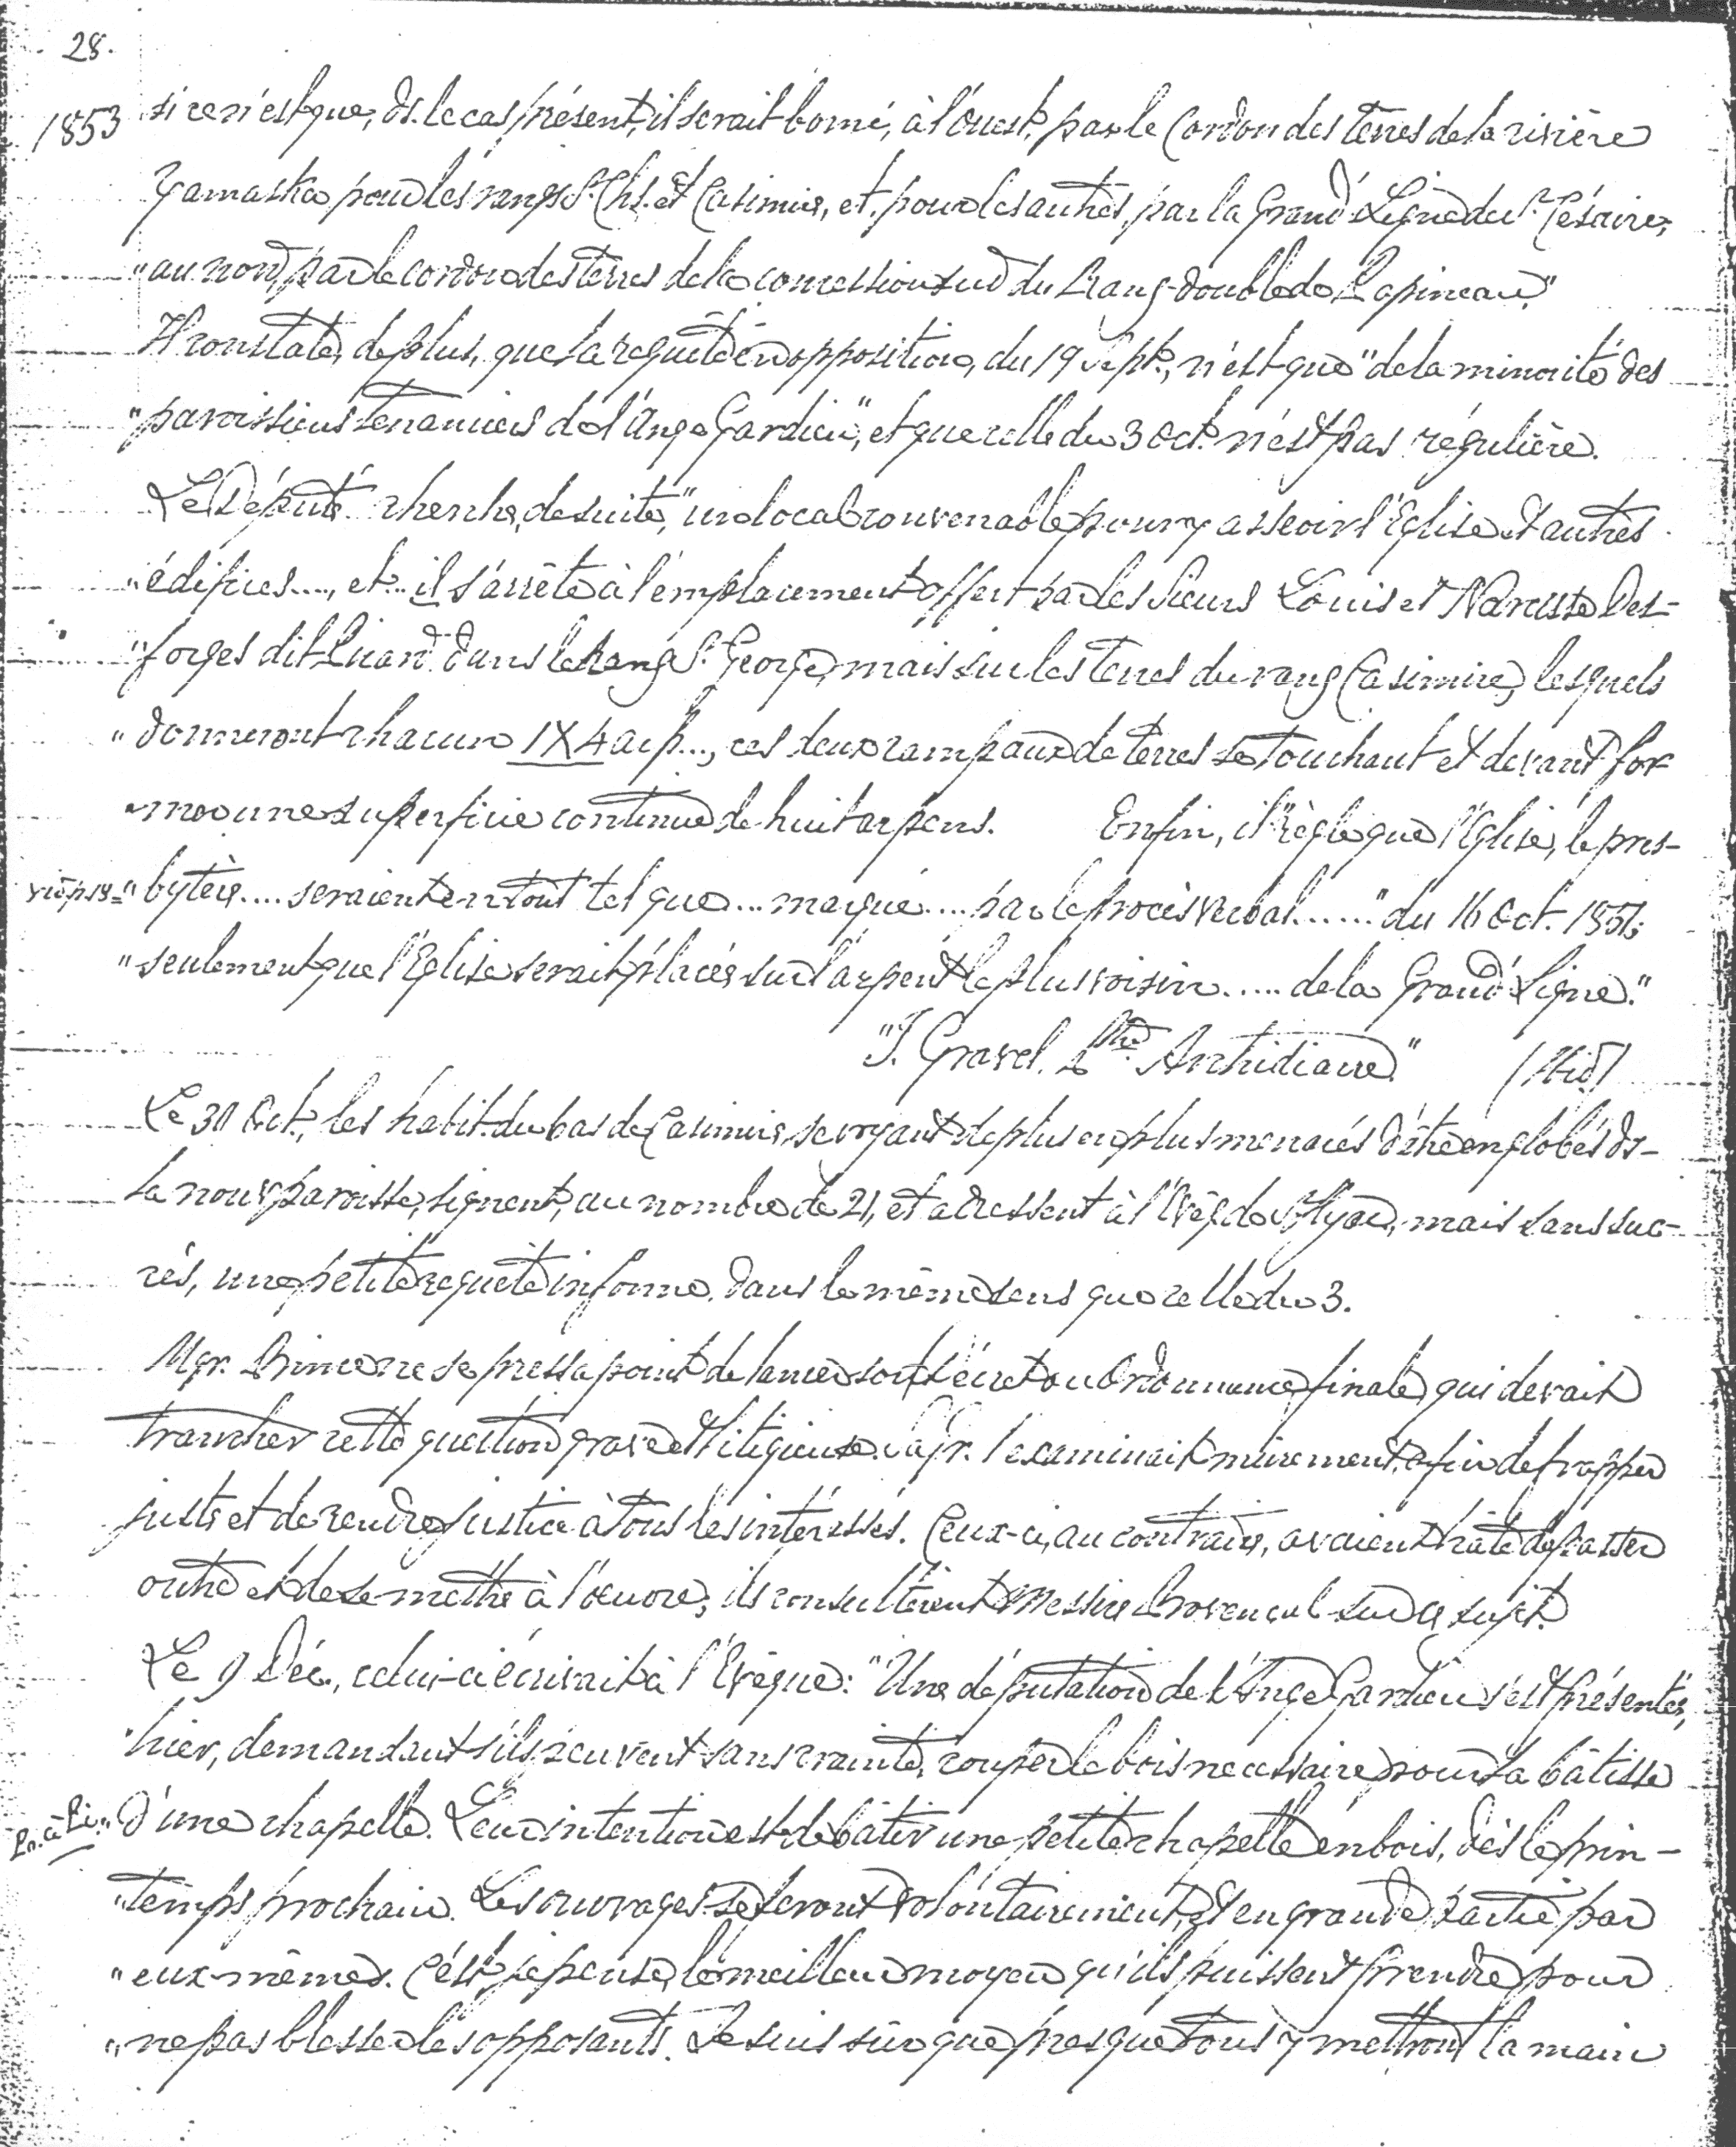 28.
1853 si ce n'est que, ds. le cas présent, il serait borné, à l'Ouest, par le Cordon des terres de la rivière
Yamaska pour les rangs St. Chs. et Casimir, et, pour les autres, par la Grand'Ligne du St. Césaire,
"au nord, par le cordon des terres de la concession sud du Rang-double de Papineau."
Il constate, de plus, que la requête en opposition, du 19 Sept., n'est que "de la minorité des
"paroissiens tenanciers de l'Ange Gardien", et que celle du 3 Oct. n'est pas régulière.
Le Député cherche, de suite, "un local convenable pour y asseoir l'Eglise et autres
"édifices...., et.. il s'arrête à l'emplacement offert par les Sieurs Louis et Narcisse Des-
"forges dit Picard dans le Rang St. George, mais sur les terres du rang Casimir, lesquels
"donneront chacun 1X4 arp..., ces deux campeaux de terres se touchant et devant for-
"mer une superficie continue de huit arpens. Enfin, il "règle que l'Eglise, le pres-
vid. p. 18= "bytère.... seraient en tout tel que... marqué.... par le procès verbal......" du 16 Oct. 1851;
"seulement que l'Eglise serait placée sur l'arpent le plus voisin..... de la Grand'Ligne."
"J. Gravel. Ptre Archidiacre." (Ibid)
Le 30 Oct., les habit. du bas de Casimir, se voyant de plus en plus menacés d'être englobés ds-
la nouv. paroisse, signent, au nombre de 21, et adressent à l'Evêq. de St. Hyac., mais sans suc-
cès, une petite requête informe, dans le même sens que celle du 3.
Mgr. Prince ne se pressa point de lancer son Décret ou Ordonnance finale, qui devait
trancher cette question grave et litigieuse. Sa Gr. l'examinait mûrement, afin de frapper
juste et de rendre justice à tous les intéressés. Ceux-ci, au contraire, avaient hâte de passer
outre et de se mettre à l'oeuvre; ils consultèrent Messire Provençal sur ce sujet.
Le 9 Déc., celui-ci écrivait à l'Evêque: "Une députation de l'Ange Gardien s'est présentée,
"hier, demandant s'ils peuvent sans crainte, couper le bois necessaire pour la bâtisse
"d'une chapelle. Leur intention est de bâtir une petite chapelle en bois, dès le prin-
"temps prochain. Les ouvrages se feront volontairement, et en grande partie par
"eux-mêmes. C'est, je pense, le meilleur moyen qu'ils puissent prendre pour
"ne pas blesser les opposants. Je suis sûr que presque tous y mettront la main